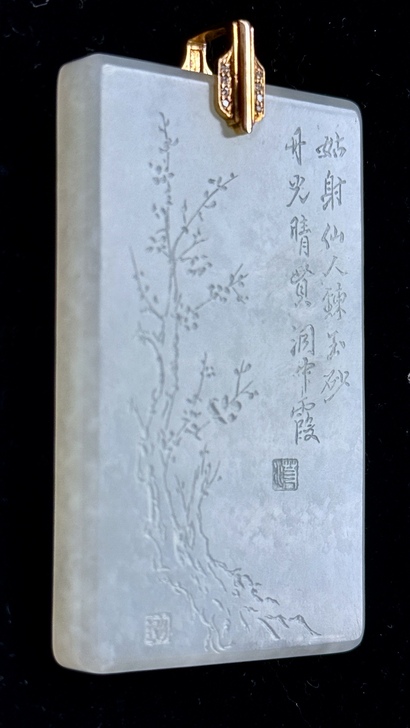 姑射仙人鍊玉砂
丹光晴貫洞中霞